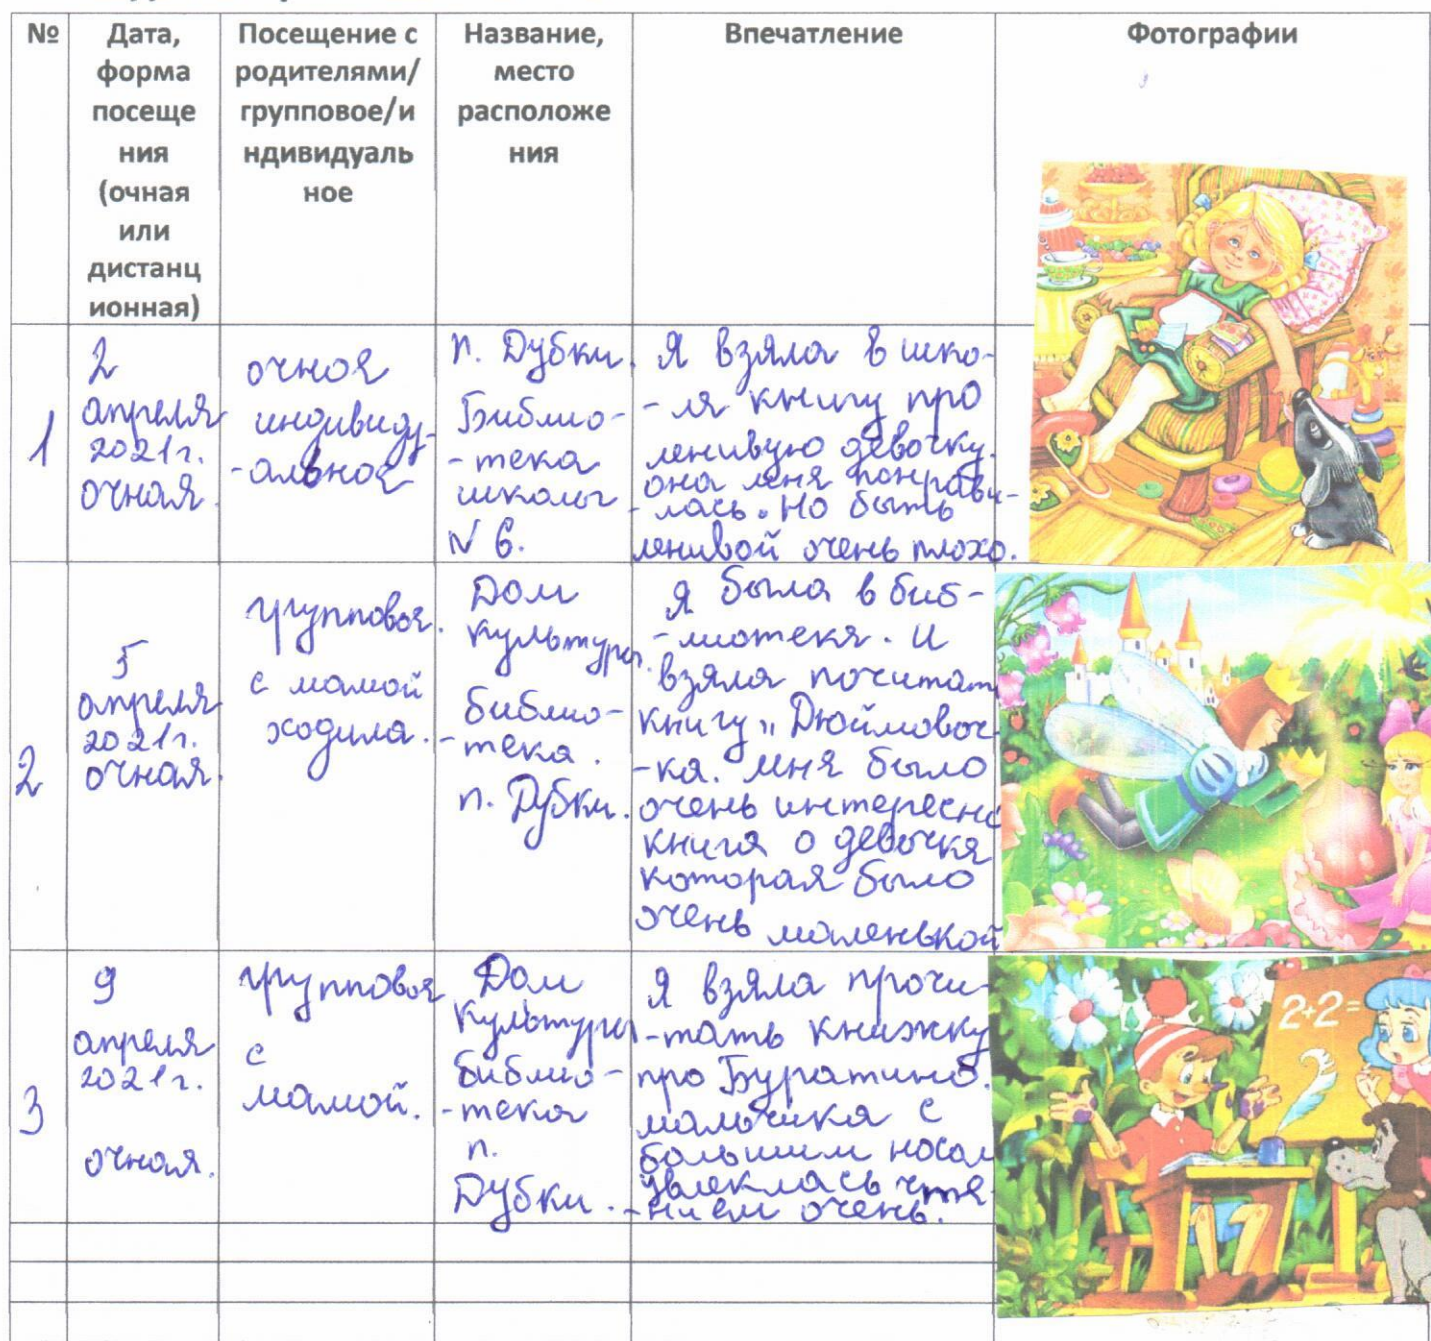 №
Дата,
форма
посеще
ния
(очная
или
дистанц
ионная)
Посещение с
родителями/
групповое/и
ндивидуаль
ное
Название,
место
расположе
ния
Впечатление
Фотографии
1
2
апреля
2021г.
очная.
очная
индивиду-
-альная
п. Дубки.
Библио-
-тека
школы
N 6.
Я взяла в шко-
-ля книгу про
ленивую девочку.
она меня понрави-
-лась. Но быть
ленивой очень плохо.
2
5
апреля
2021г.
очная.
групповая.
с мамой
ходила.
Дом
культуры.
библио-
-тека.
п. Дубки.
Я была в биб-
-лиотекя. И
взяла почитат
книгу „Дюймовоч
-ка. мня было
очень интересно
книга о девочкя
которая было
очень маленькой
3
9
апреля
2021г.
очная.
групповая
с
мамой.
Дом
культуры
библио-
-тека
п.
Дубки.
Я взяла прочи-
-тать книжку
про Буратино.
мальчика с
большим носом
увлеклась чтя
-нием очень.
2+2=